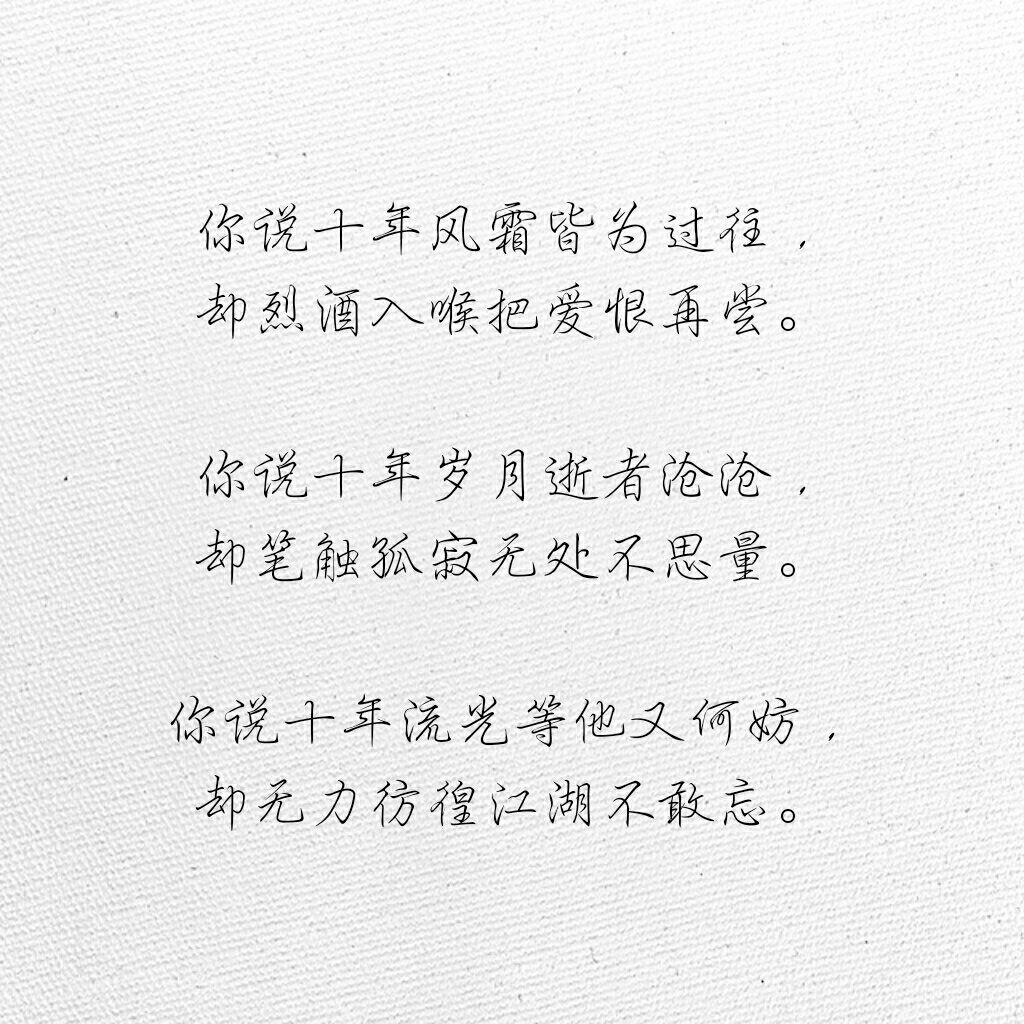 你说十年风霜皆为过往，
却烈酒入喉把爱恨再尝。
你说十年岁月逝者沧沧，
却笔触孤寂无处不思量。
你说十年流光等他又何妨，
却无力彷徨江湖不敢忘。